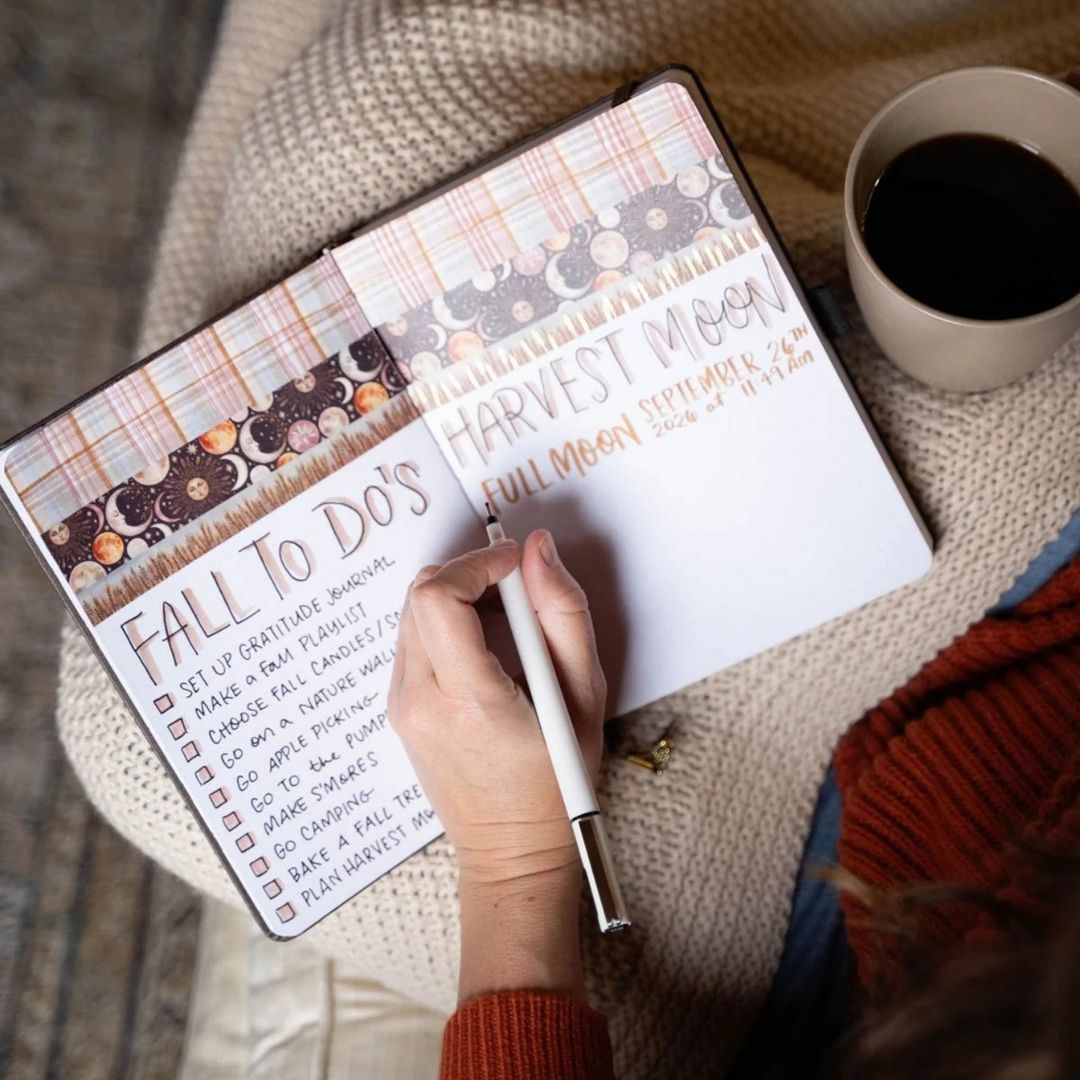 FALL TO DO'S
SET UP GRATITUDE JOURNAL
MAKE a FAll PLAYLIST
CHOOSE FALL CANDLES/
GO on a NATURE
GO APPLE PICKING
GO TO the
MAKE S'MORES
GO CAMPING
BAKE A FALL
PLAN HARVEST
HARVEST MOON
FULL MOON SEPTEMBER 26TH
2026 at 11:49 Am